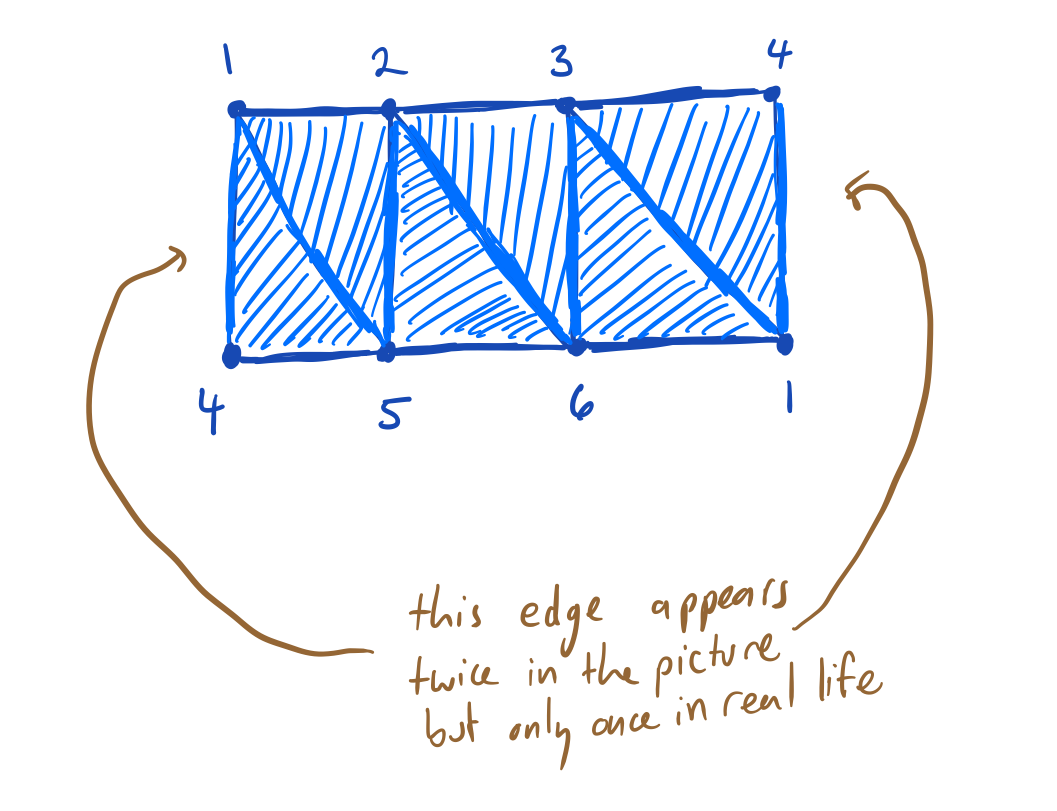 1 2 3 4
4 5 6 1
this edge appears
twice in the picture
but only once in real life